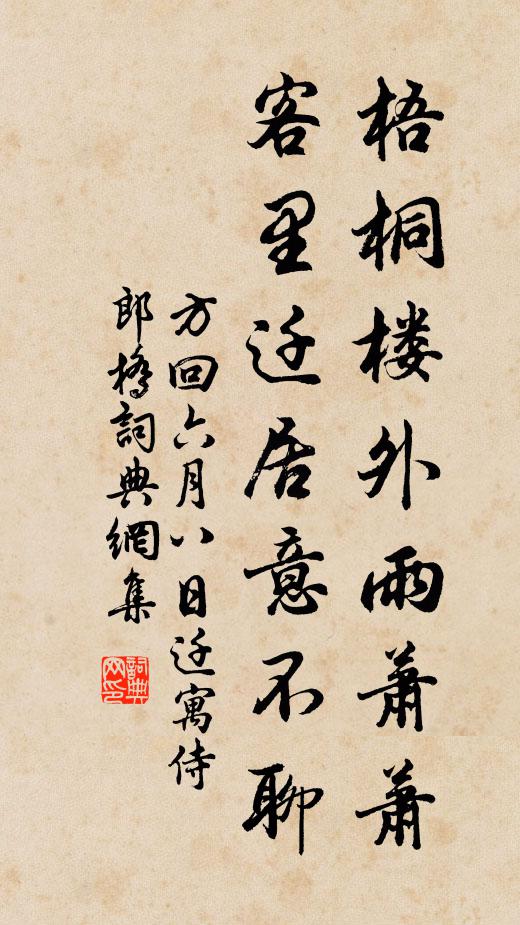 梧桐楼外雨萧萧
客里迁居意不聊
方回六月八日迁寓侍
郎橋詞典網集
詞典
网印